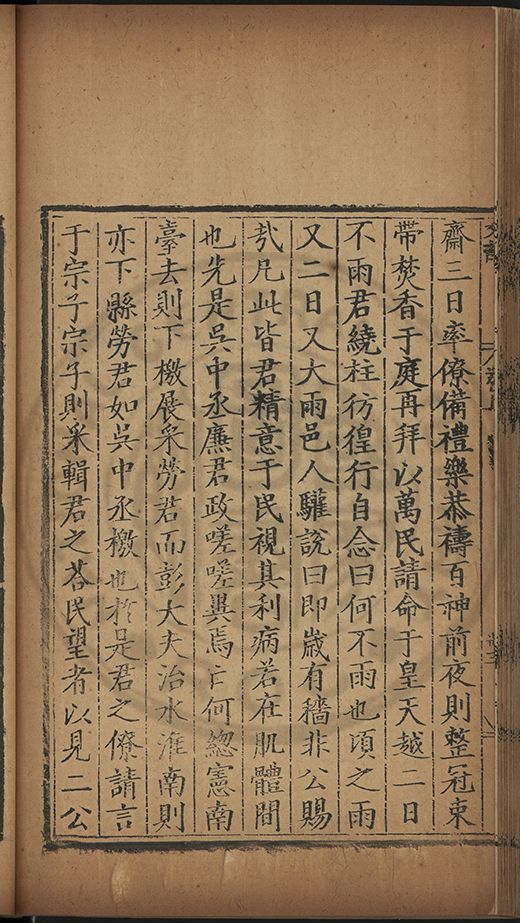 齋三日率僚備禮樂恭禱百神前夜則整冠束
帶焚香于庭再拜以萬民請命于皇天越二日
不雨君繞柱彷徨行自念曰何不雨也頃之雨
又二日又大雨邑人驩說曰即歲有穡非公賜
㢤凡此皆君精意于民視其利病若在肌體間
也先是吳中丞廉君政嗟嗟異焉亡何總憲南
臺去則下檄展采勞君而彭大夫治水淮南則
亦下縣勞君如吳中丞檄也於是君之僚請言
于宗子宗子則采輯君之荅民望者以見二公